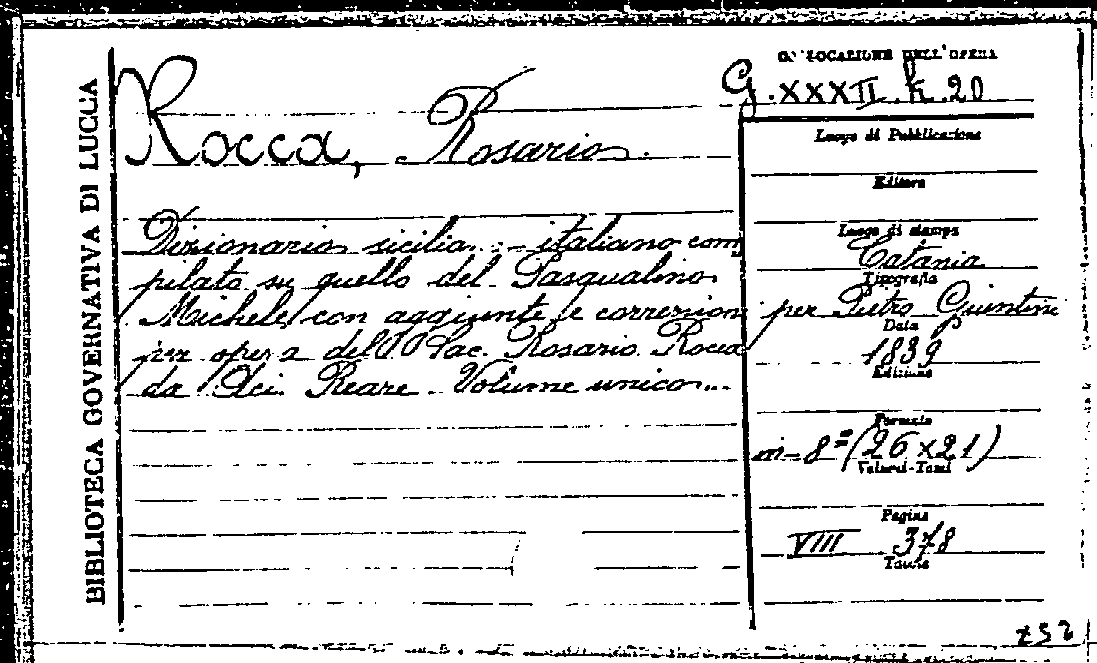 BIBLIOTECA GOVERNATIVA DI LUCCA
COLLOCAZIONE DELL'OPERA
G. XXXII. h. 20
Rocca, Rosario.
Dizionario sicilia... - italiano com
pilato su quello del Pasqualino
Michele con aggiunte e correzioni
per opera del Sac. Rosario Rocca
da Aci Reare. Volume unico...
Luogo di Pubblicazione
Editore
Luogo di stampa
Catania
Tipografia
per Pietro Giuntini
Data
1839
Edizione
Formato
in-8° (26 x 21)
Volumi-Tomi
Pagine
VIII 378
Tavole
252